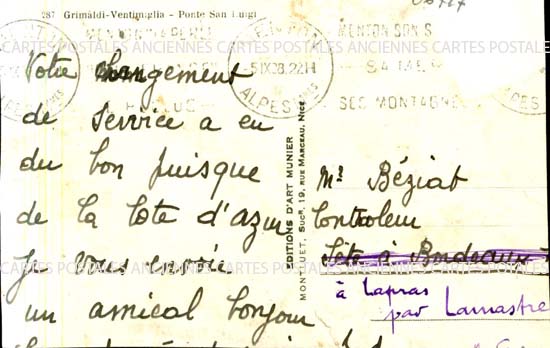 287 Grimàldi-Ventimiglia - Ponte San Luigi
MENTON SON S
SES MONTAGNE
5 IX 38.22H
ALPES
CARTES POSTALES ANCIENNES CARTES POSTALES ANCIENNES CARTES POSTALES
Votre changement
de service a eu
du bon puisque
de la Cote d'azur
Je vous envoie
un amical bonjour
EDITIONS D'ART MUNIER
MONTLUET, Sucr, 19, RUE MARCEAU, NICE
Mr Béziat
Controleur
Séte à Bordeaux
à Lapras
par Lamastre